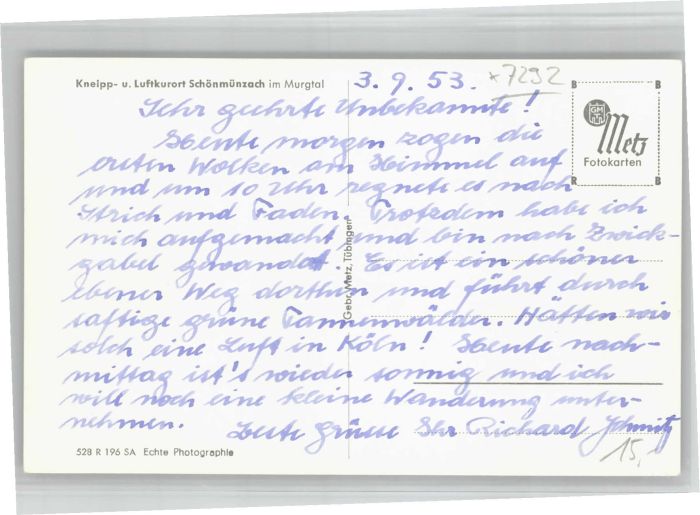 Kneipp- u. Luftkurort Schönmünzach im Murgtal
3.9.53.
*7292
Sehr geehrte Unbekannte!
Heute morgen zogen die
ersten Wolken am Himmel auf
und um 10 Uhr regnete es nach
Strich und Faden. Trotzdem habe ich
mich aufgemacht und bin nach Zwick-
gabel gewandert. Es ist ein schöner
ebener Weg dorthin und führt durch
saftige grüne Tannenwälder. Hätten wir
solch eine Luft in Köln! Heute nach-
mittag ist's wieder sonnig und ich
will noch eine kleine Wanderung unter-
nehmen.
Beste Grüsse Ihr Richard Schmitz
15,
B B
GM
Metz
Fotokarten
R B
Gebr. Metz, Tübingen
528 R 196 SA Echte Photographie